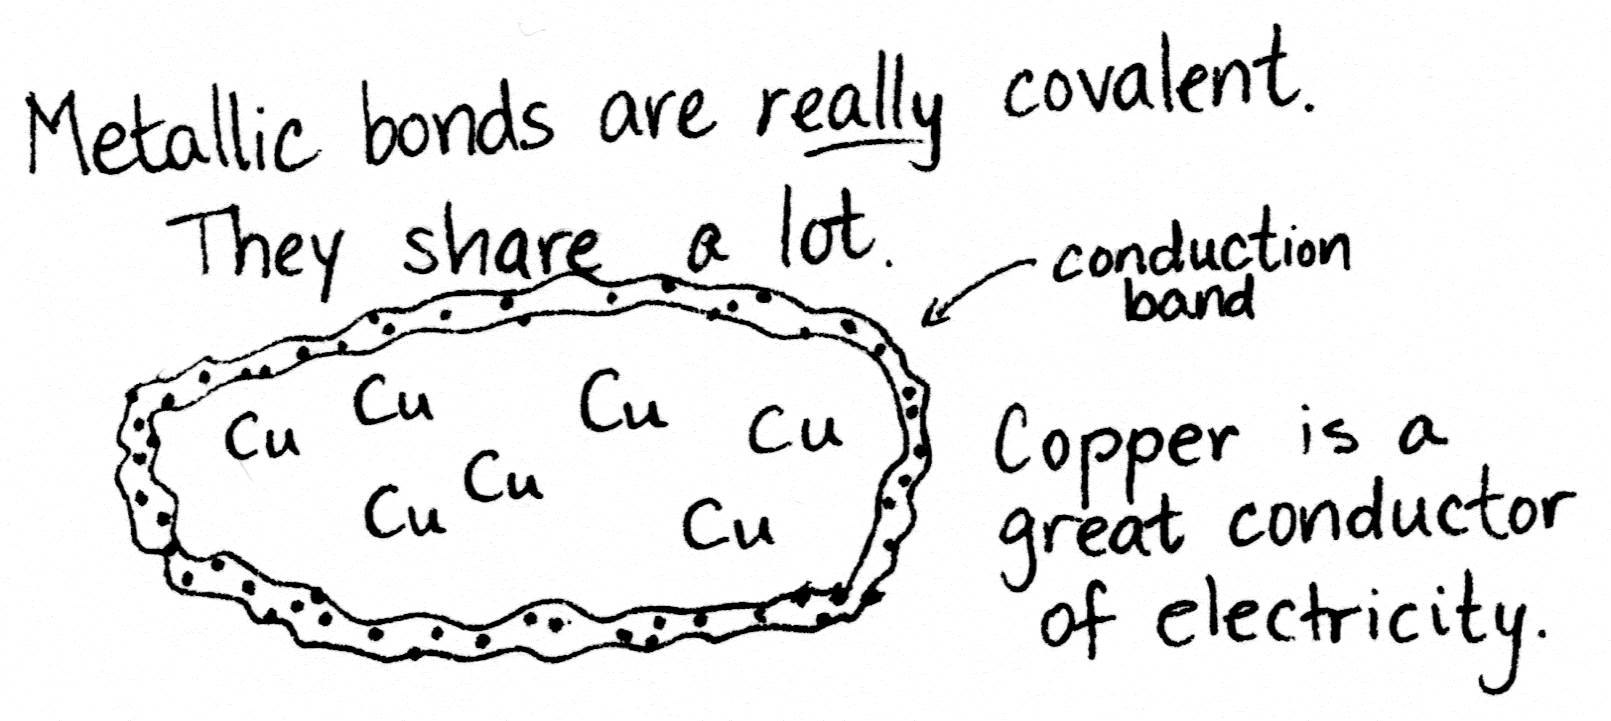 Metallic bonds are really covalent.
They share a lot.
conduction
band
Cu Cu Cu Cu
Cu Cu Cu
Copper is a
great conductor
of electricity.